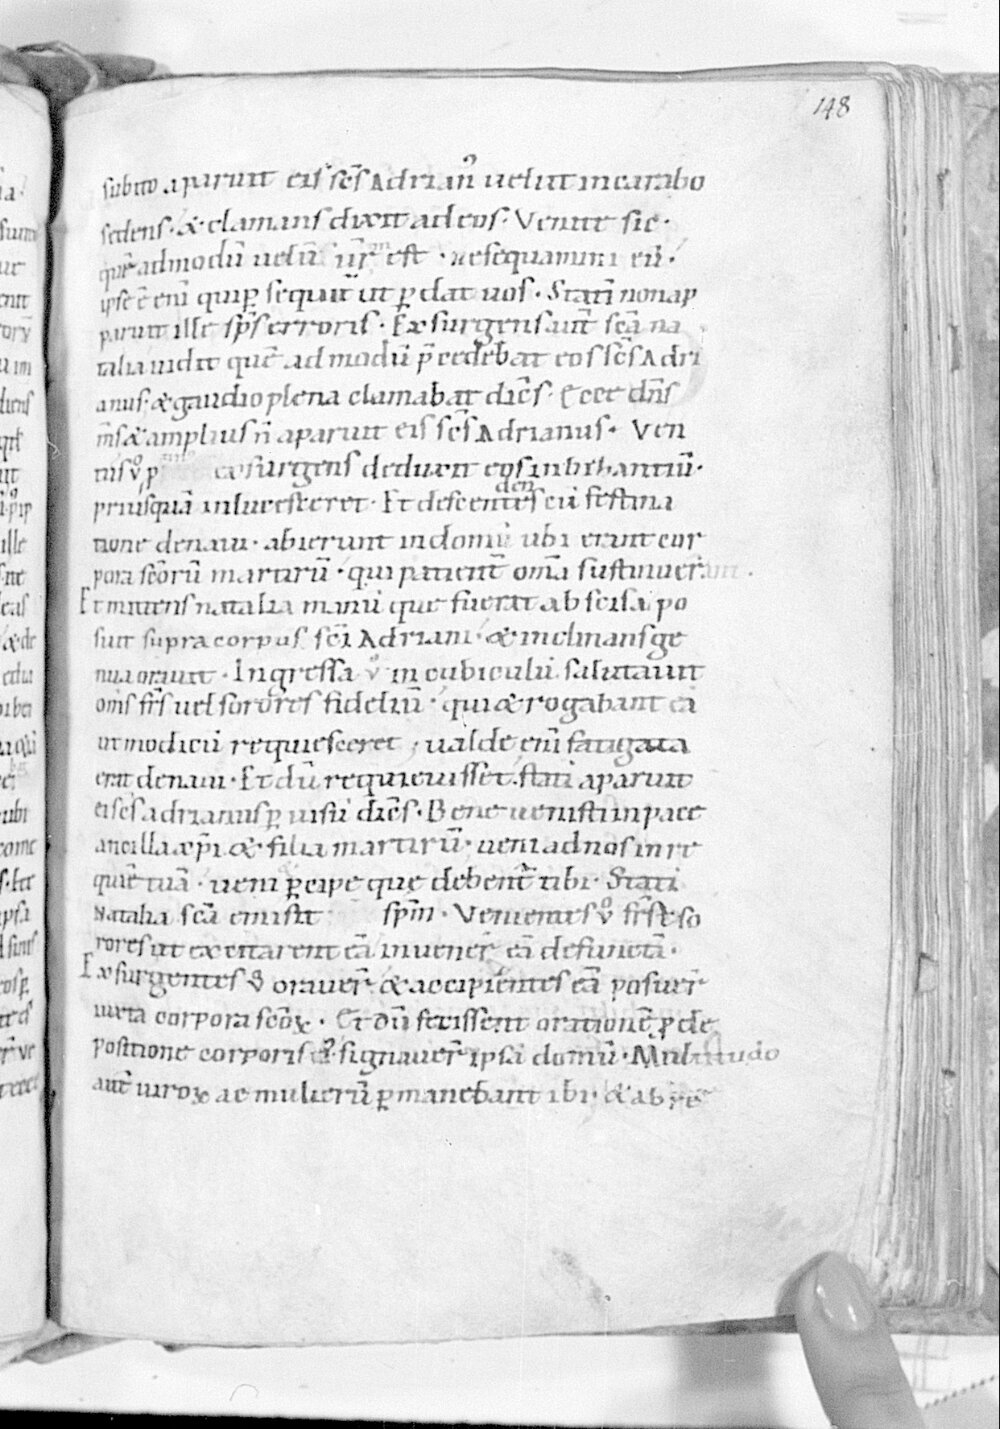 148
subito aparuit eis scs̄ Adrian᾽ uelut incarabo
sedens · & clamans dixit ad eos · Venite sic ·
quē admodū uelū ur̄m est · ne sequamini eū ·
ipse ē enī qui p̱ sequit̄ ut p̱dat uos · Statī non ap
paruit ille sps̄ erroris · Exsurgens aut̄ scā na
talia uidit quē ad modū p̄cedebat eos scs̄ Adri
anus · & gaudio plena clamabat dicēs · Ecce dn̄s
ms̄ & amplius n̄ aparuit eis scs̄ Adrianus · Ven
tus v̊ exsurgens deduxit eos in bizantiū ·
priusquā inlucesceret · Et descendentes cū festina
tione de naui · abierunt in domū ubi erant cor
pora scōrū martirū · qui patient̄ om̄a sustinuer̄ant ·
Et mittens natalia manū que fuerat abscisa po
suit supra corpus scī Adriani · & inclinans ge
nua orauit · Ingressa v̊ in cubiculū salutauit
om̄s frs̄ uel sorores fideliū · qui & rogabant eā
ut modicū requiesceret · ualde enī fatigata
erat de naui · Et dū requieuisset · statī aparuit
ei scs̄ adrianus p̱ uisū dicēs · Bene uenisti in pace
ancilla xp̄i & filia martirū · ueni ad nos in re
quiē tuā · ueni p̱cipe que debent̄ tibi · Statī
Natalia scā emisit spm̄ · Venientes v̊ frs̄ & so
rores ut excitarent eā inuener̄ eā defunctā ·
Exsurgentes v̊ orauer̄ & accipientes eā posuer̄
iuxta corpora scōꝝ · Et dū fecissent orationē p̱ de
positione corporis ei᾽ · signauer̄ ipsā domū · Multitudo
aut̄ uiroꝝ ac mulierū p̱manebant ibi · & ab re